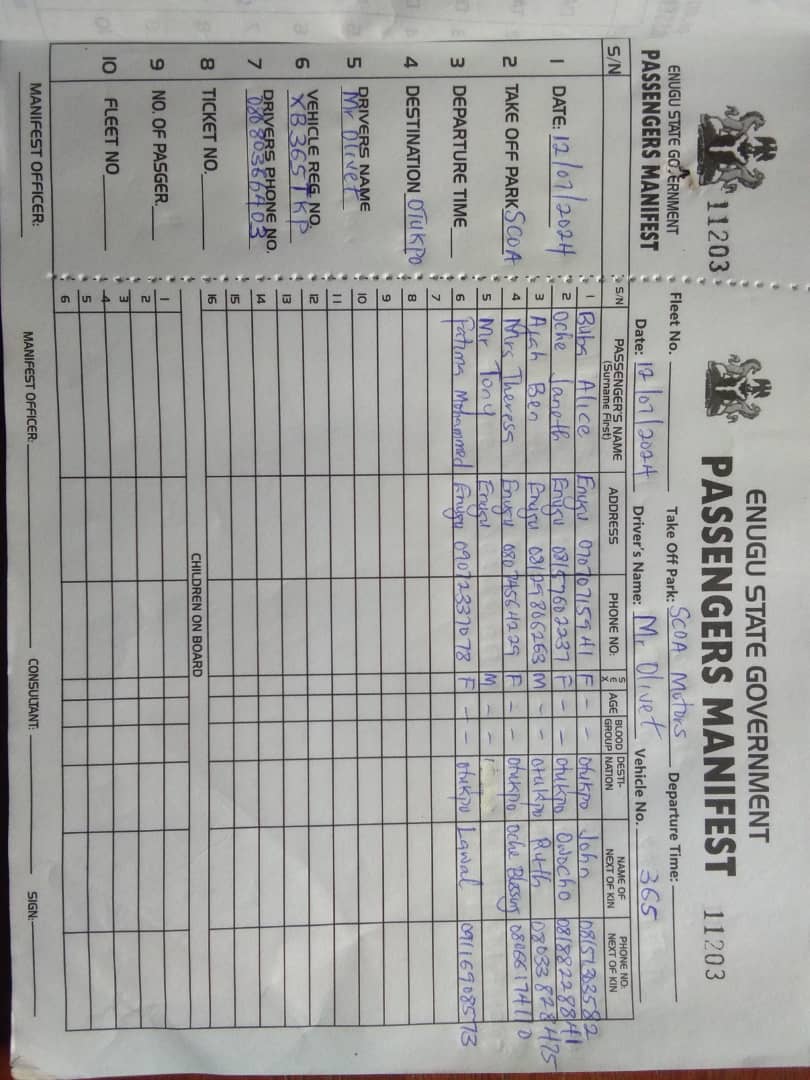 ENUGU STATE GOVERNMENT
PASSENGERS MANIFEST
11203
S/N
1 DATE: 12/07/2024
2 TAKE OFF PARK SCOA
3 DEPARTURE TIME
4 DESTINATION OTUKPO
5 DRIVERS NAME
Mr Olivet
6 VEHICLE REG NO.
XB365TKP
7 DRIVERS PHONE NO.
08080366403
8 TICKET NO.
9 NO. OF PASGER.
10 FLEET NO
MANIFEST OFFICER:
ENUGU STATE GOVERNMENT
PASSENGERS MANIFEST 11203
Fleet No. Take Off Park: SCOA Motors Departure Time:
Date: 12/07/2024 Driver's Name: Mr Olivet Vehicle No. 365
S/N PASSENGER'S NAME (Surname First) ADDRESS PHONE NO: SEX AGE BLOOD GROUP DESTI-NATION NAME OF NEXT OF KIN PHONE NO: NEXT OF KIN
1 Buba Alice Enugu 07070715941 F - - Otukpo John 08151303582
2 Oche Janeth Enugu 08157602237 F - - Otukpo Owocho 08188228841
3 Ajah Ben Enugu 08129806263 M - - Otukpo Ruth 08033828475
4 Mrs Theresa Enugu 08074564229 F - - Otukpo Oche Blessing 08066174110
5 Mr Tony Enugu M - -
6 Fatima Mohammed Enugu 09072337078 F - - Otukpo Lawal 09116908573
7
8
9
10
11
12
13
14
15
16
CHILDREN ON BOARD
1
2
3
4
5
6
MANIFEST OFFICER: CONSULTANT: SIGN: